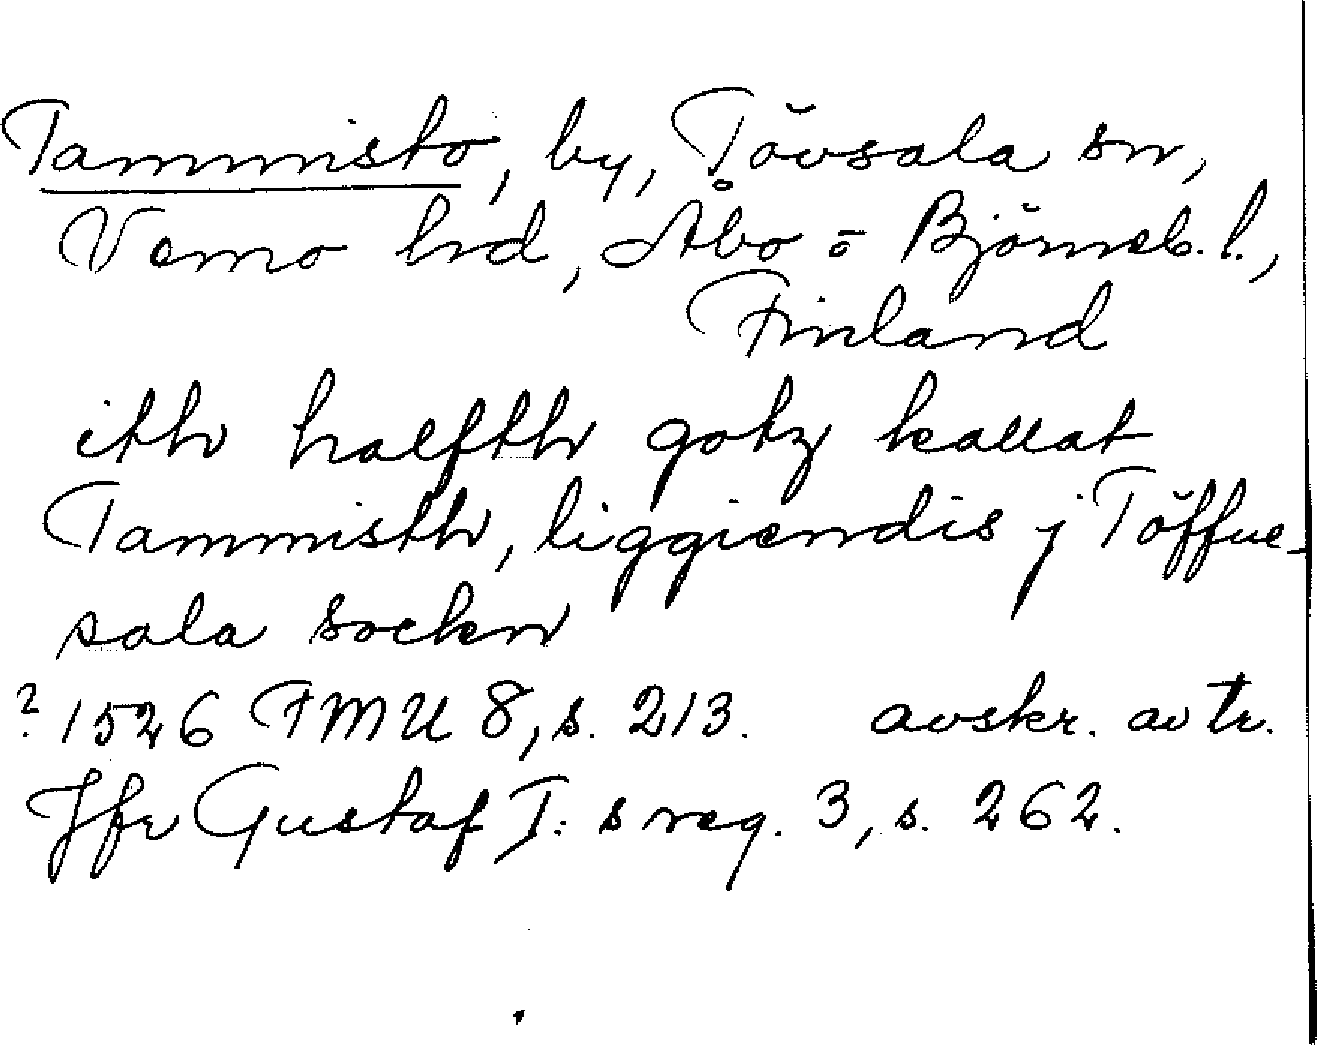 Tammisto, by, Tövsala sn,
Vemo hd, Åbo o Björneb. l.,
Finland
itth halfth gotz kallat
Tammisth, liggiendis j Töffue-
sala sockn
? 1526 FMU 8, s. 213. avskr. av tr.
Jfr Gustaf I: s reg. 3, s. 262.